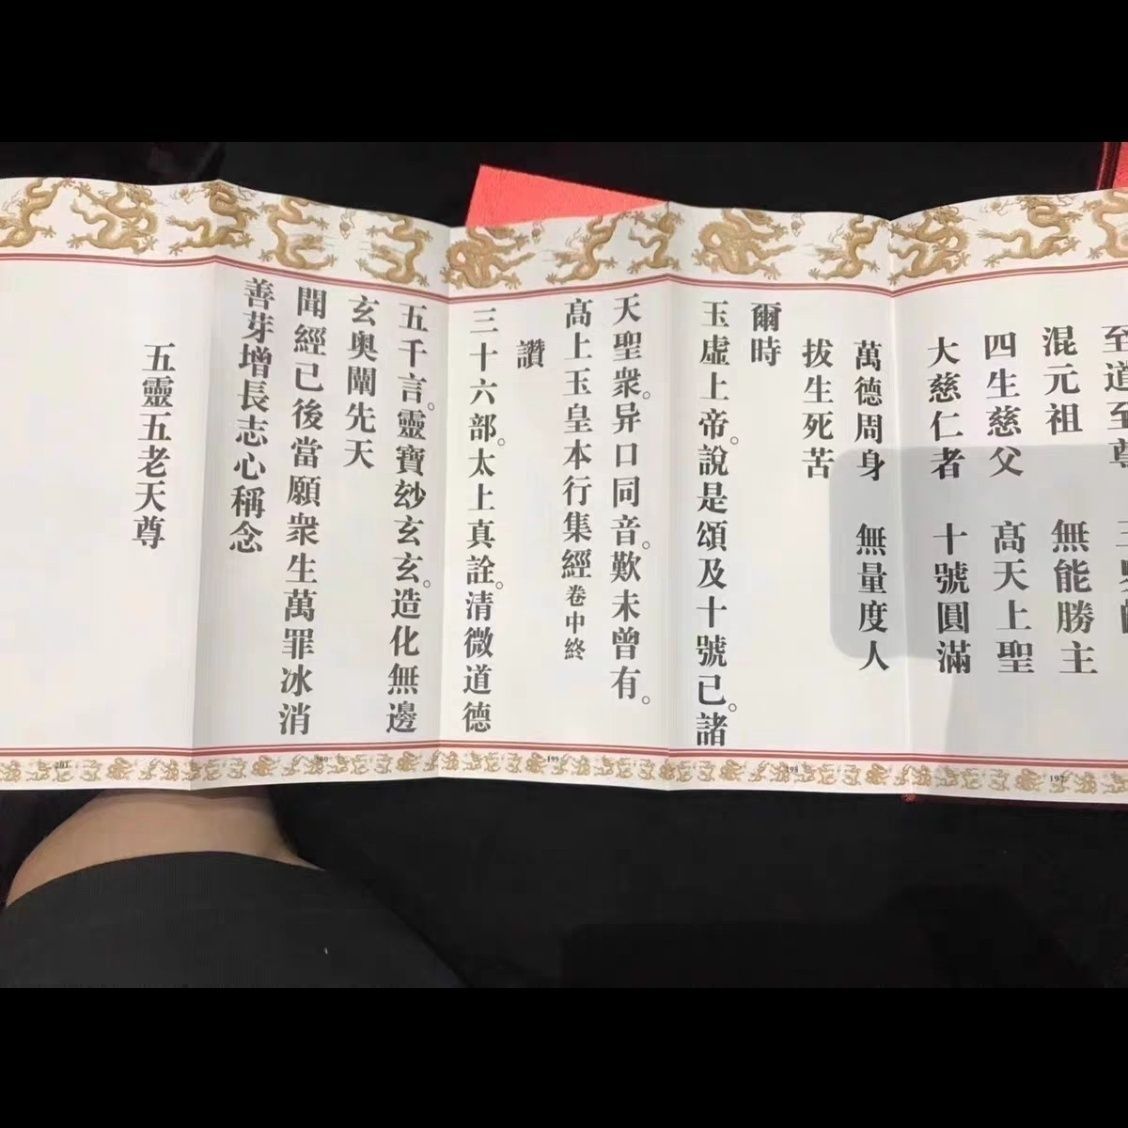 至道至尊
混元祖 無能勝主
四生慈父 高天上聖
大慈仁者 十號圓滿
萬德周身 無量度人
拔生死苦
爾時
玉虛上帝。說是頌及十號已。諸
天聖衆。异口同音。歎未曾有。
高上玉皇本行集經卷中終
讚
三十六部。太上真詮。清微道德
五千言。靈寶玅玄玄。造化無邊
玄奥闡先天
聞經已後當願衆生萬罪冰消
善芽增長志心稱念
五靈五老天尊
197
198
199
200
201